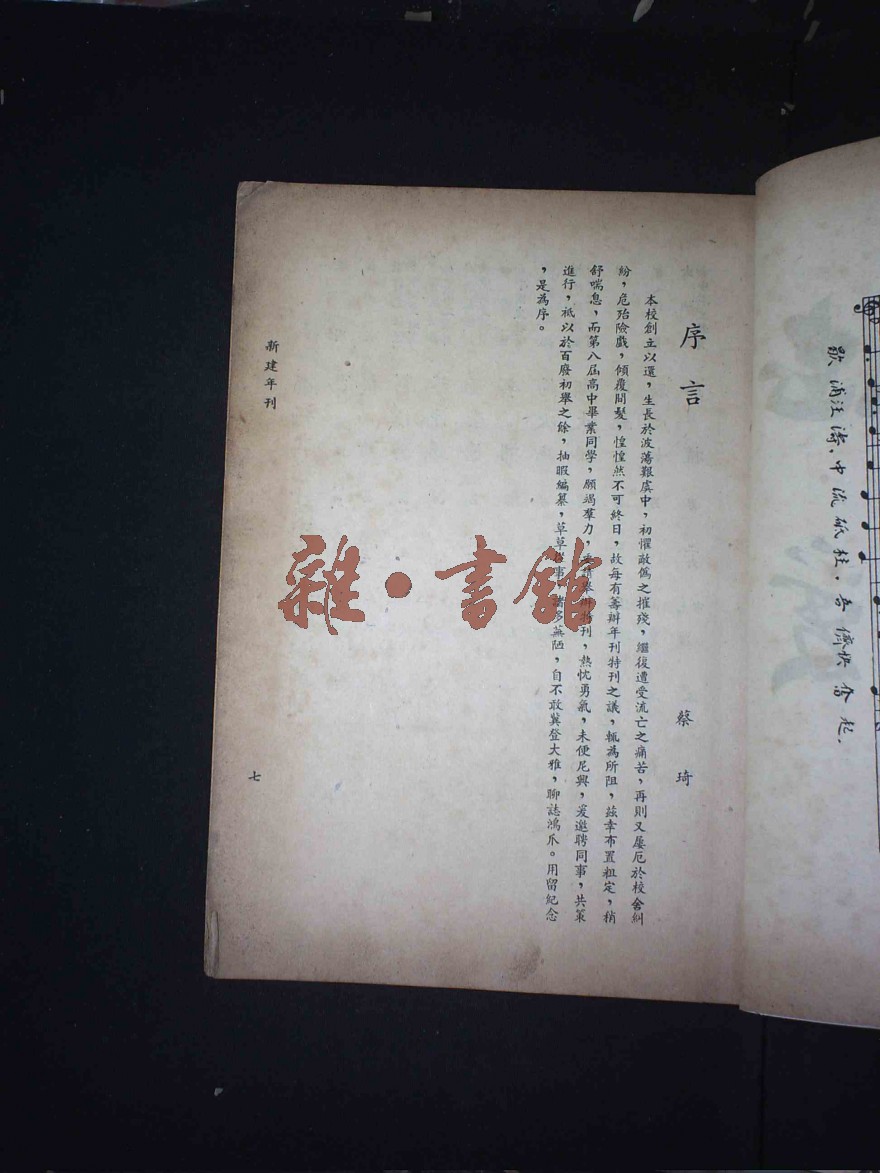 歇浦汪濤，中流砥柱，吾儕快奮起．
序言
蔡琦
本校創立以還，生長於波蕩艱虞中，初懼敵偽之摧殘，繼復遭受流亡之痛苦，再則又屢厄於校舍糾
紛，危殆險戲，傾覆間髮，惶惶然不可終日，故每有籌辦年刊特刊之議，輒為所阻，茲幸布置粗定，稍
舒喘息，而第八屆高中畢業同學，願竭羣力，舉辦特刊，熱忱勇氣，未便尼興，爰邀聘同事，共策
進行，祇以於百廢初舉之餘，抽暇編纂，草草從事，諸多蕪陋，自不敢冀登大雅，聊誌鴻爪。用留紀念
，是為序。
新建年刊
七
雜·書館